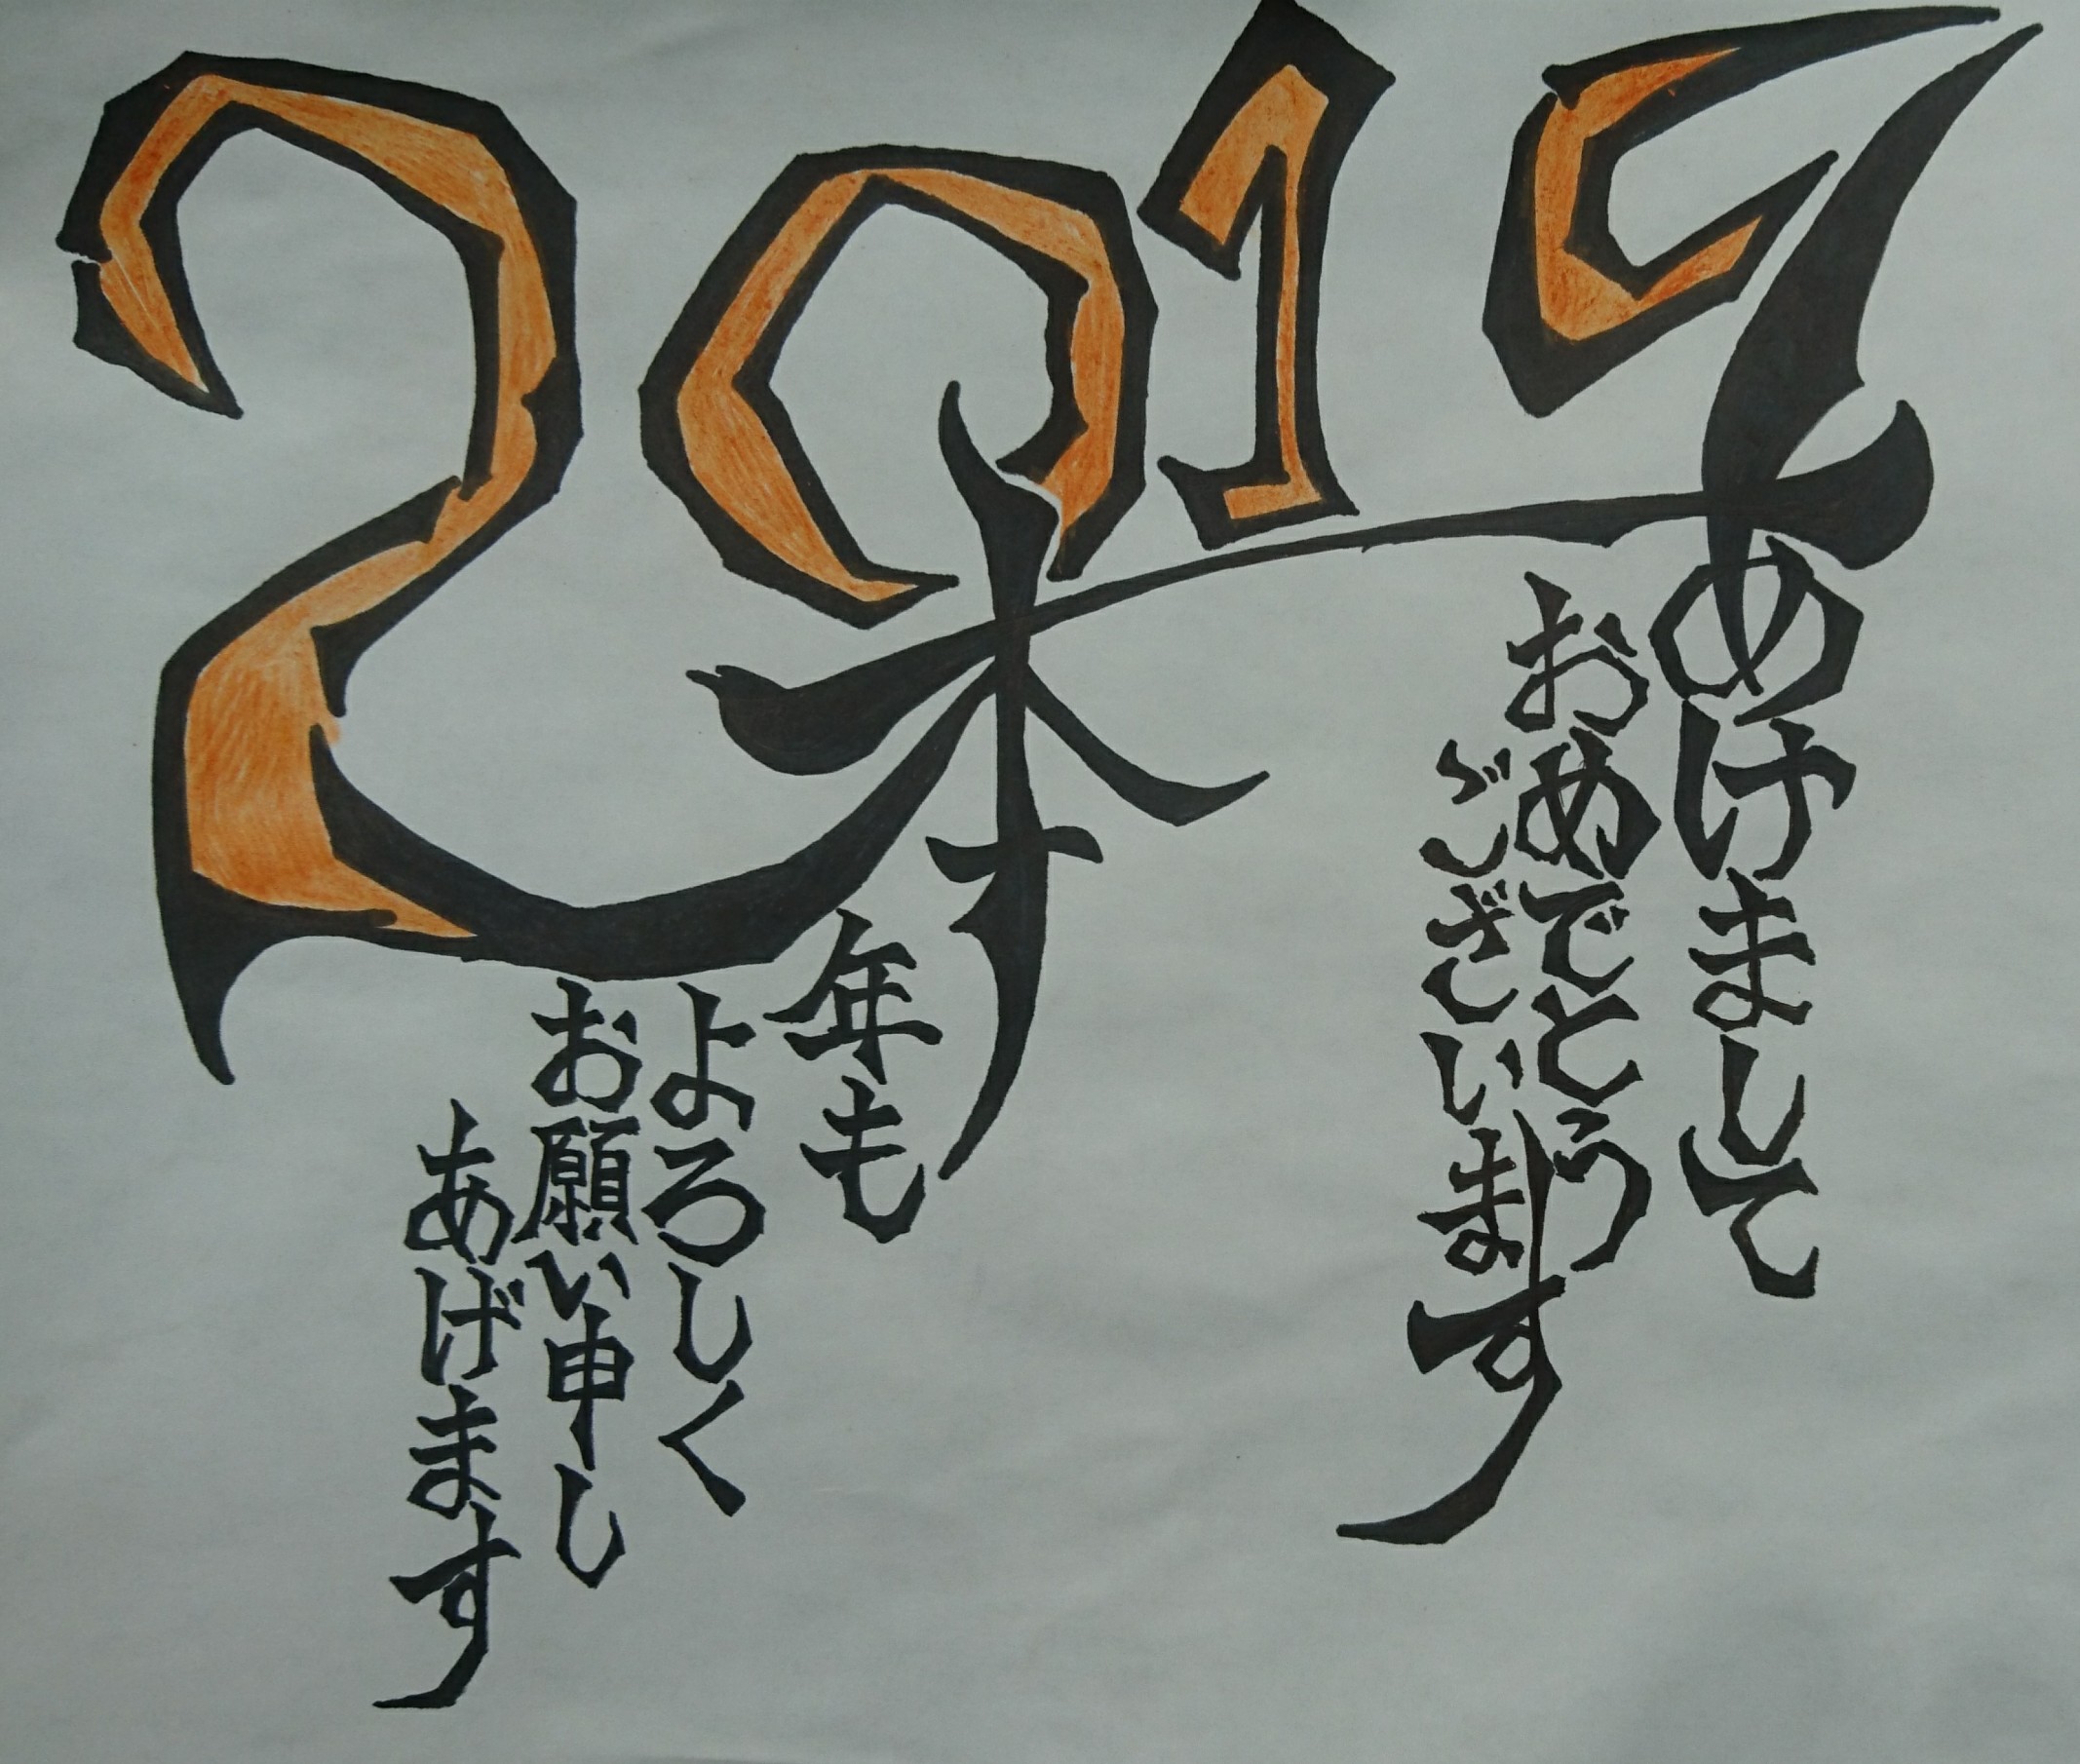 2019
あけまして
おめでとう
ございます
本年も
よろしく
お願い申し
あげます